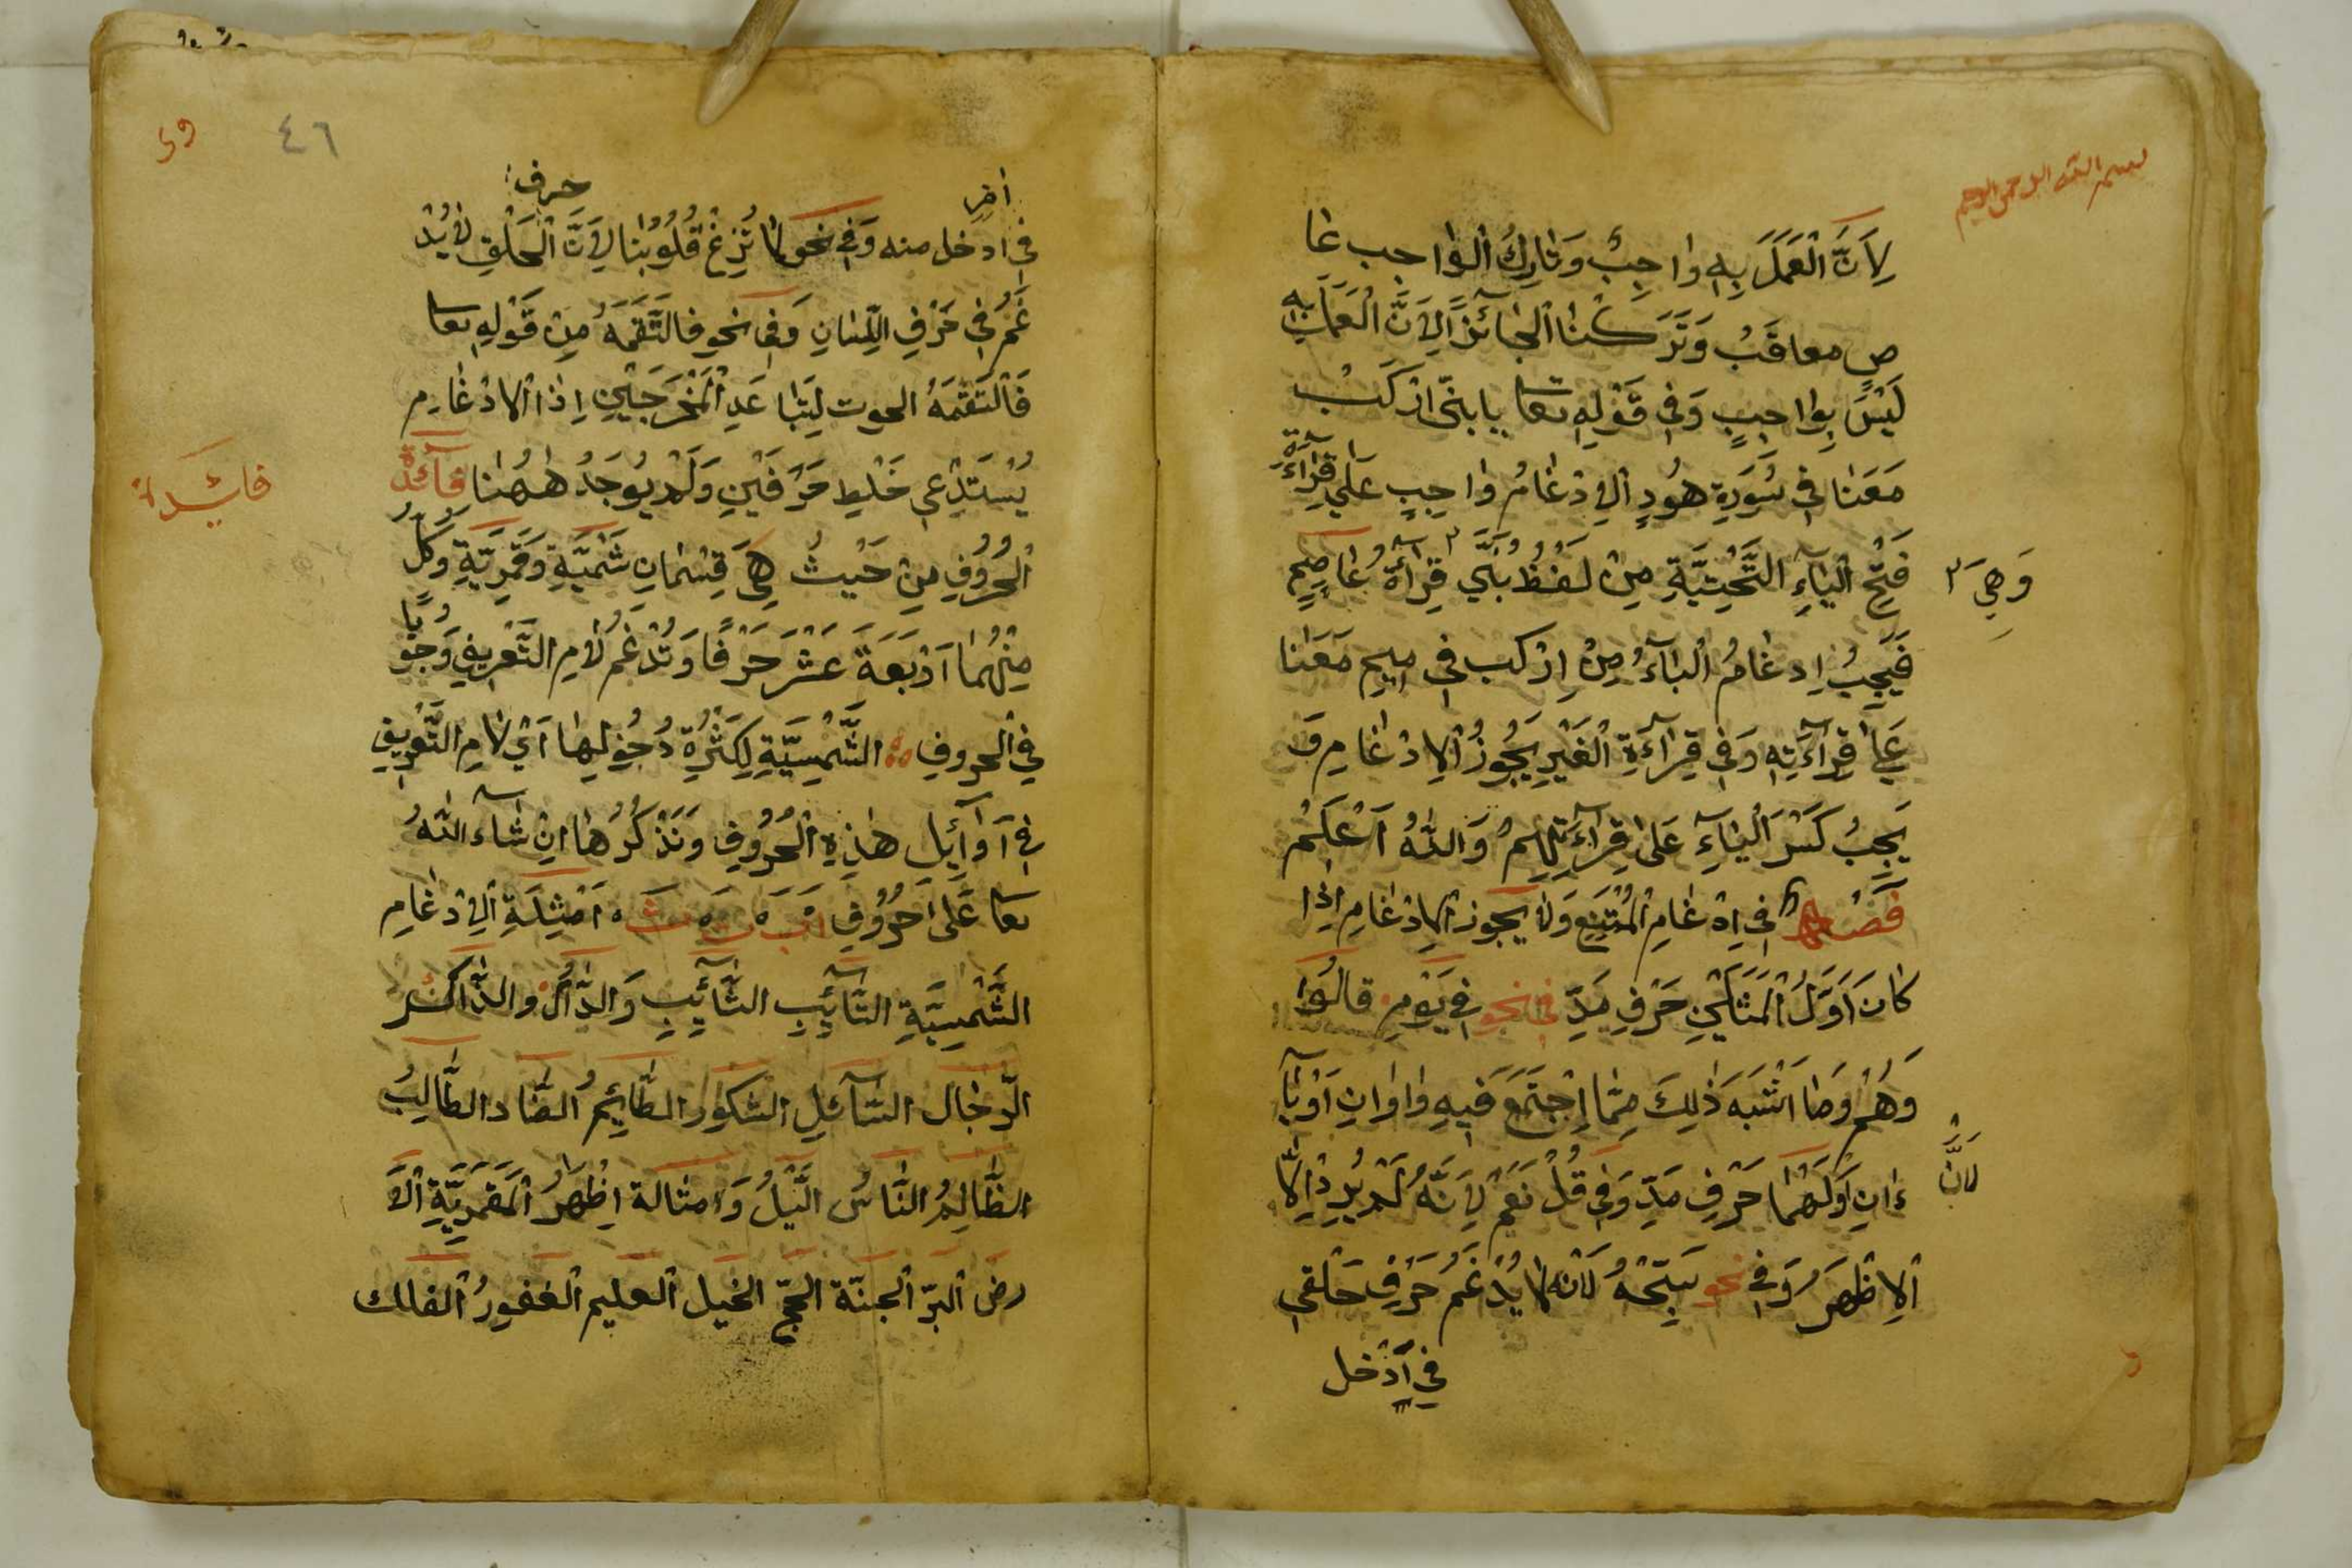 بسم الله الرحمن الرحيم
لِاَنَّ الْعَمَلَ بِهِ وٰاجِبٌ وَتٰارِكُ الْوٰاجِبِ عٰا
صٍ معاقَبُ وَتَرَكْنٰا الْجٰائِزَ لِاَنَّ الْعَمَلَ بِهِ
لَيْسَ بِوٰاجِبٍ وَفِي قَوْلِهِ تعا يا بنيّ ارْكَبْ
مَعَنٰا فِي سُورَةِ هُودٍ اَلْاِدْغٰامُ وٰاجِبٍ عَلٰي قِرٰآءَةِ
فَتْحِ الْيٰآءِ التَّحْتِيَّةِ مِنْ لَفْظُ بُنَيَّ ٢ قِرٰآءَةُ عٰاصِمٍ
وَهِيَ ٢
فَيَجِبُ اِدغٰامُ الْبٰآءُ مِنْ اِرْكب فِي مِيمِ مَعَنٰا
عَلٰي قِرٰآءَتِهِ وَفِي قِرٰآءَةِ الْغَيْرِ يَجُوزُ الْاِدْغٰامِ وَ
يَجِبُ كَسْرَ الْيٰآءِ عَلٰى قِرٰآءَتِهِمْ وَاللّٰهُ اَعْلَمُ
فَصْلٌ فِي اِدْغٰامِ الْمُمْتَنِع وَلٰا يَجوز الْاِدْغٰامِ اِذٰا
كٰانَ اَوَّلُ الْمَثَلَيْنِ حَرْفِ مَدِّ فِي نحو فِي يَوْمِ قالُوا
وَهُمْ وَمٰا اشْبَهَ ذٰلِكَ مِمّٰا اِجْتَمَعَ فِيهِ وٰاوٰانِ اَوْ يٰآ
ءٰانِ اَوَّلَهُمٰا حَرْفِ مَدِّ وَفِي قُلْ نَعَمْ لِاَنَّهُ لَمْ يُرِدْ اِلّٰا
لِاَنَّ
الْاِظْهٰرَ وَفِي نحو سَبِّحْهُ لِانه لٰا يُدْغَمُ حَرْفِ حَلْقي
فِي اَدْخل
٤٦
فِي ادخل منه وَفِي نحو لٰا تُزِغْ قُلُوبُنٰا لِاَنَّ الْحَلْقِ لٰا يُدْ
حرف
غَمُ فِي حَرْفِ اللِّسٰانِ وَفِي نحو فالتَقَمَهُ مِنْ قَوْلِهِ تعا
فَالْتَقَمَهُ الحوت لِتَبٰاعَدِ الْمَخْرَجَيْنِ اِذٰا الْادْغٰامِ
يَسْتَدْعِي خَلْطِ حَرْفَيْنِ وَلَمْ يُوجَدُ هٰهُنٰا فٰآئِدَةٌ
فائدة
الْحُرُوفِ مِنْ حَيْثُ هِيَ قِسْمٰانِ شَمْيَّةِ وَقَمَرِيَّةِ وَكلُّ
مِنْهُمٰا اَرْبَعَةَ عَشَرَ حَرْفًا وَتُدْغَمُ لٰامِ التَّعْرِيفِ وُجُوبًا
فِي الْحروفِ الشَّمْسِيَّةِ لِكَثْرَةِ دُخُولِهٰا اَيْ لٰامِ التَّعْرِيفِ
فِي اَوٰآئِلِ هٰذِهِ الْحُرُوفِ وَنَذْكُرُهٰا اِنْ شٰآءَ اللّٰهُ
تعا عَلٰى حُرُوفِ اَبَ تَ ثَ اَمْثِلَةِ الْاِدْغٰامِ
الشَّمْسِيَّةِ التَّآئِبِ الثَّآئِبِ وَالدّٰآلُ والذّٰاكر
الرّجٰال السّٰآئلِ الشكور الصّٰائِمُ الضّٰاد الطّٰالِبُ
الظّٰالِمُ النّٰاسُ الَّيْلُ وَامثٰالة اِظْهٰرُ الْقَمَرِيَّةِ اَلْاَ
رض اَلبرّ اَلجنّة الحجّ الخيل اَلعليم اَلغفورُ اَلفالك